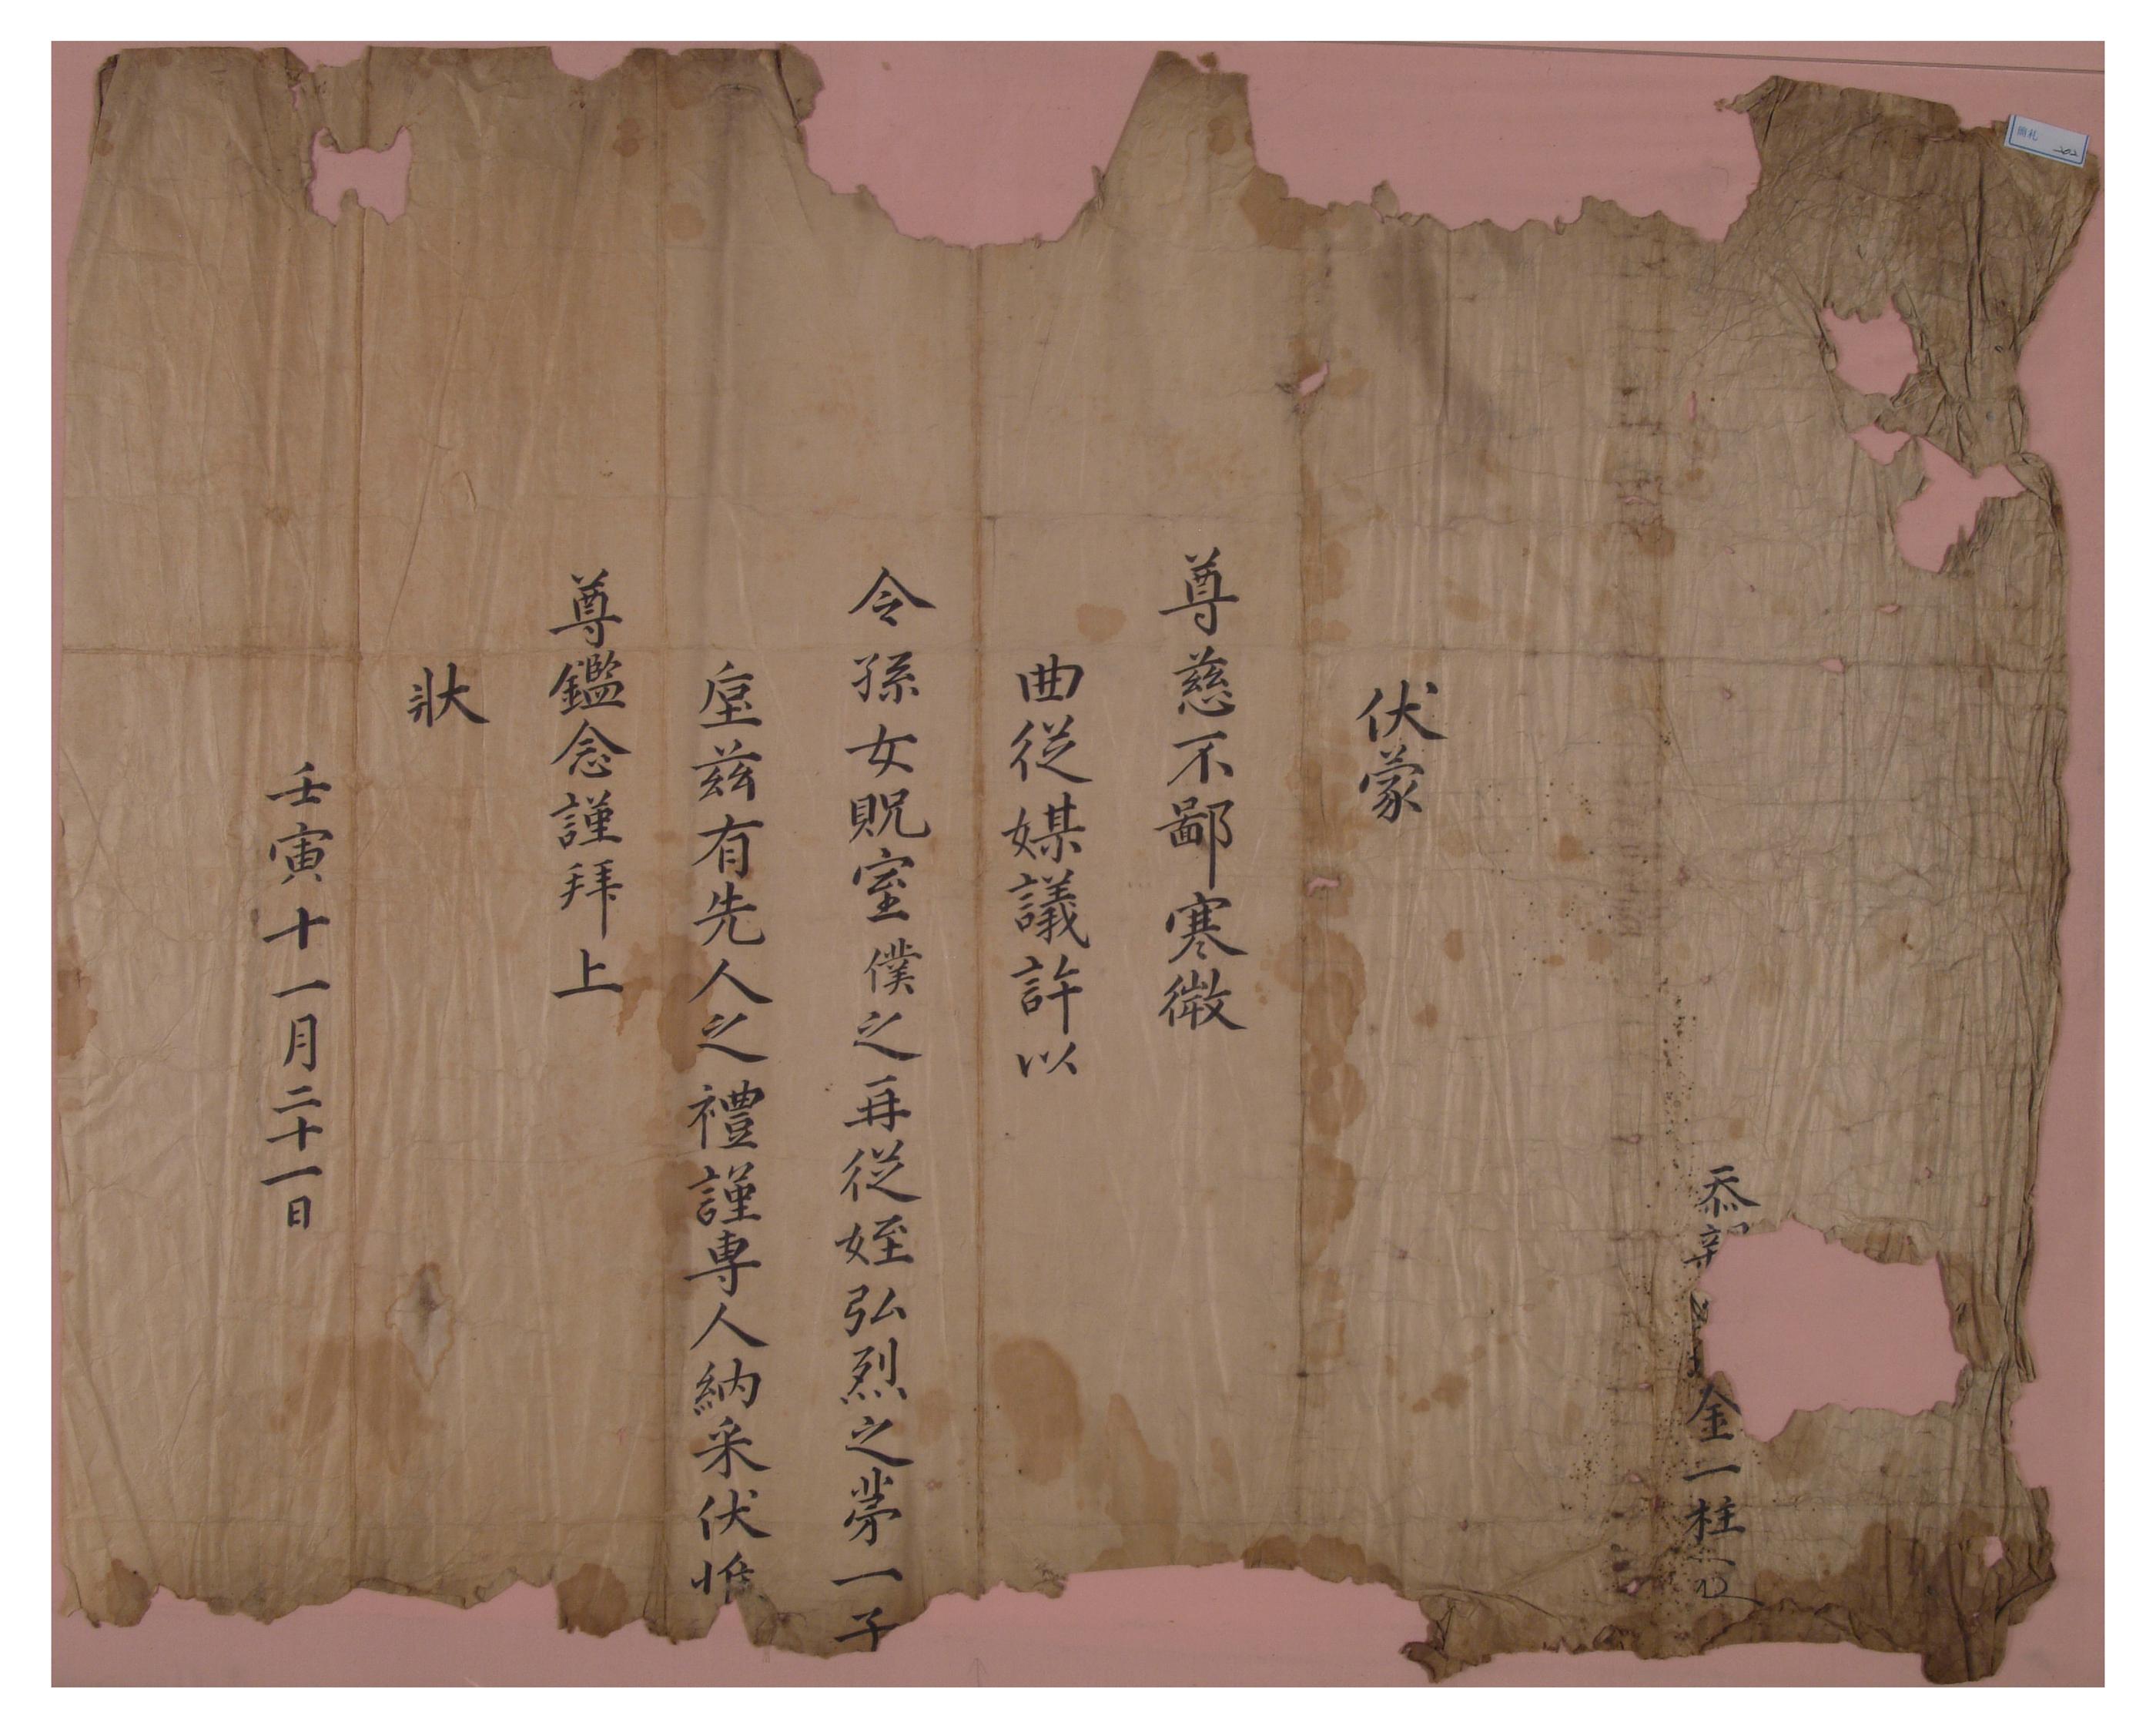 簡札
202
忝親 金一柱
伏蒙
尊慈不鄙寒微
曲從媒議許以
令孫女貺室僕之再從姪弘烈之第一子
玆有先人之禮謹專人納采伏惟
尊鑑念謹拜上
狀
壬寅十一月二十一日